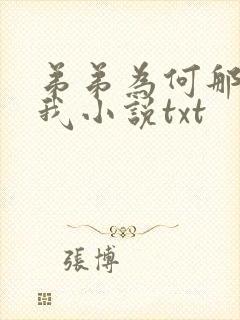 弟弟為何那
我小說txt
張博